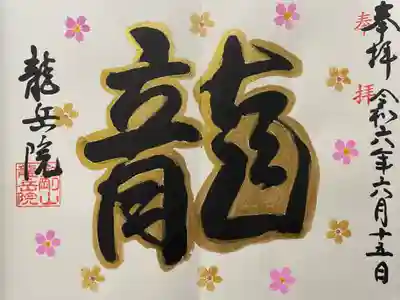 奉拝
奉拝
令和六年六月十五日
龍
龍岳院
剛山
龍岳院